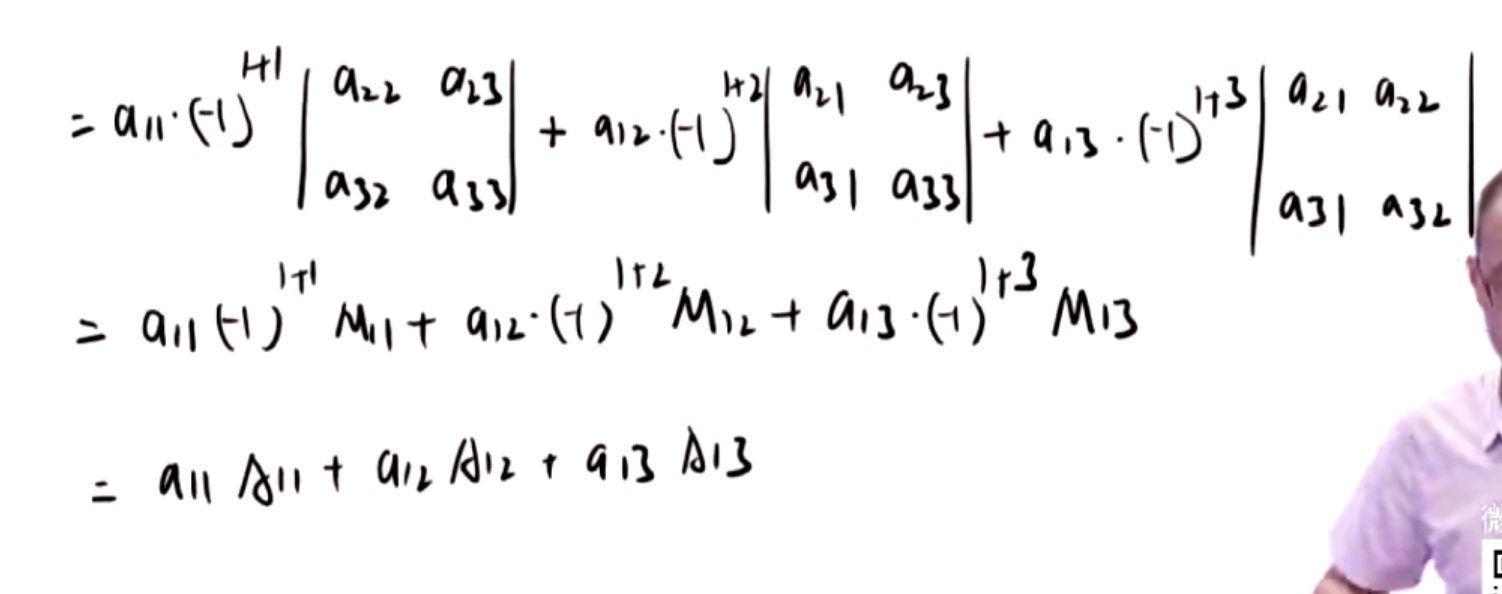 = a₁₁·(-1)¹⁺¹ | a₂₂ a₂₃ ; a₃₂ a₃₃ | + a₁₂·(-1)¹⁺² | a₂₁ a₂₃ ; a₃₁ a₃₃ | + a₁₃·(-1)¹⁺³ | a₂₁ a₂₂ ; a₃₁ a₃₂ |
= a₁₁(-1)¹⁺¹ M₁₁ + a₁₂·(-1)¹⁺² M₁₂ + a₁₃·(-1)¹⁺³ M₁₃
= a₁₁ A₁₁ + a₁₂ A₁₂ + a₁₃ A₁₃
微